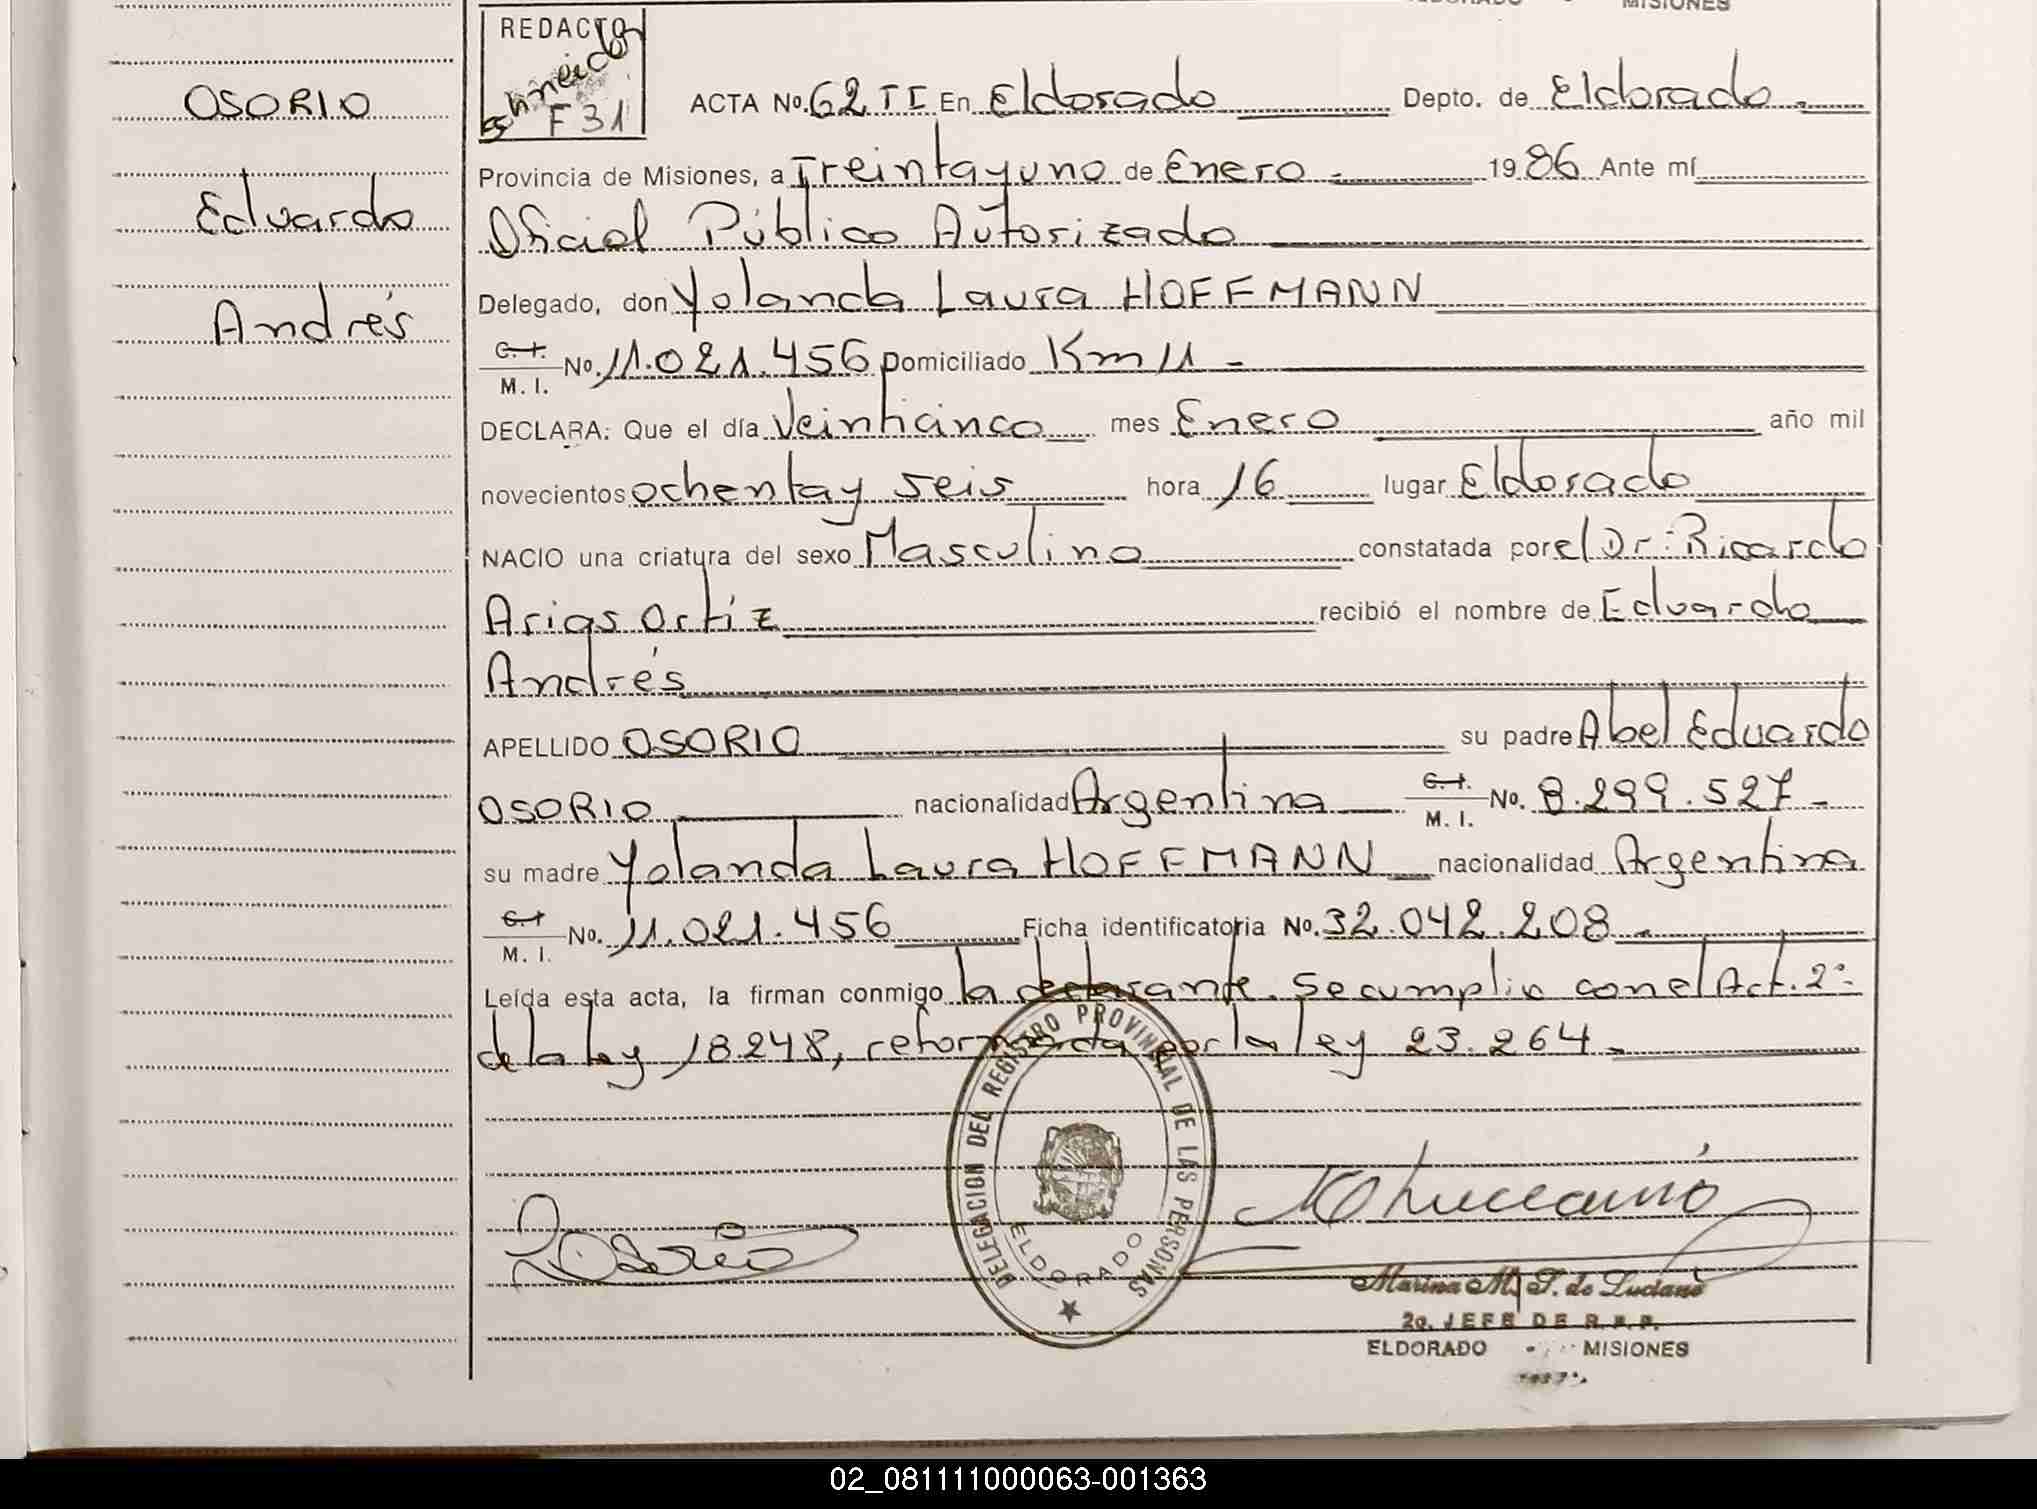 MISIONES
OSORIO
Eduardo
Andrés
REDACTO
Schneider
F 31
ACTA No. 62 TI En Eldorado Depto. de Eldorado.-
Provincia de Misiones, a Treintayuno de Enero.- 1986 Ante mí
Oficial Público Autorizado
Delegado, don Yolanda Laura HOFFMANN
C.I. M. I. No. 11.021.456 Domiciliado Km 11 -
DECLARA: Que el día Veinticinco mes Enero año mil
novecientos ochentay seis hora 16 lugar Eldorado
NACIO una criatura del sexo Masculino constatada por el Dr: Ricardo
Arias Ortíz recibió el nombre de Eduardo
Andrés
APELLIDO OSORIO su padre Abel Eduardo
OSORIO nacionalidad Argentina C.I. M. I. No. 8.299.527-
su madre Yolanda Laura HOFFMANN nacionalidad Argentina
C.I. M. I. No. 11.021.456 Ficha identificatoria No. 32.042.208.-
Leída esta acta, la firman conmigo la declarante. Se cumplio con el Act. 2°
de la ley 18.248, reformada por la ley 23.264.-
DELEGACION DEL REGISTRO PROVINCIAL DE LAS PERSONAS
ELDORADO
Osorio
Marina M. T. de Lucianó
2o. JEFE DE R.P.P.
ELDORADO - MISIONES
02_081111000063-001363